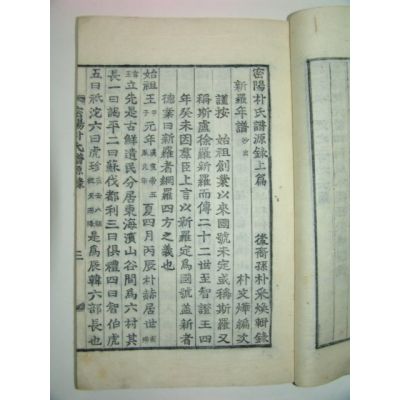 密陽朴氏譜源錄上篇
後裔孫朴采煥輯錄
新羅年譜
朴文燁編次
謹按 始祖創業以來國號未定或稱斯羅又
稱斯盧徐羅新羅而傳二十二世至智證王四
年癸未因羣臣上言以新羅定爲國號盖新者
德業日新羅者網羅四方之義也
始祖王 元年 夏四月丙辰朴諱居世
立先是古鮮遺民分居東海濱山谷間爲六村其
長一曰謁平二曰蘇伐都利三曰俱禮四曰智伯虎
五曰祇沱六曰虎珍 是爲辰韓六部長也
密陽朴氏譜源錄